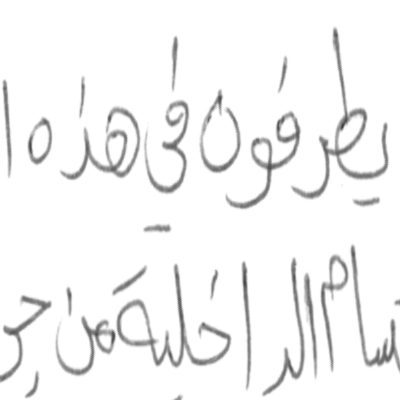 يطرفون في هذه ا
سام الداخلية من جر